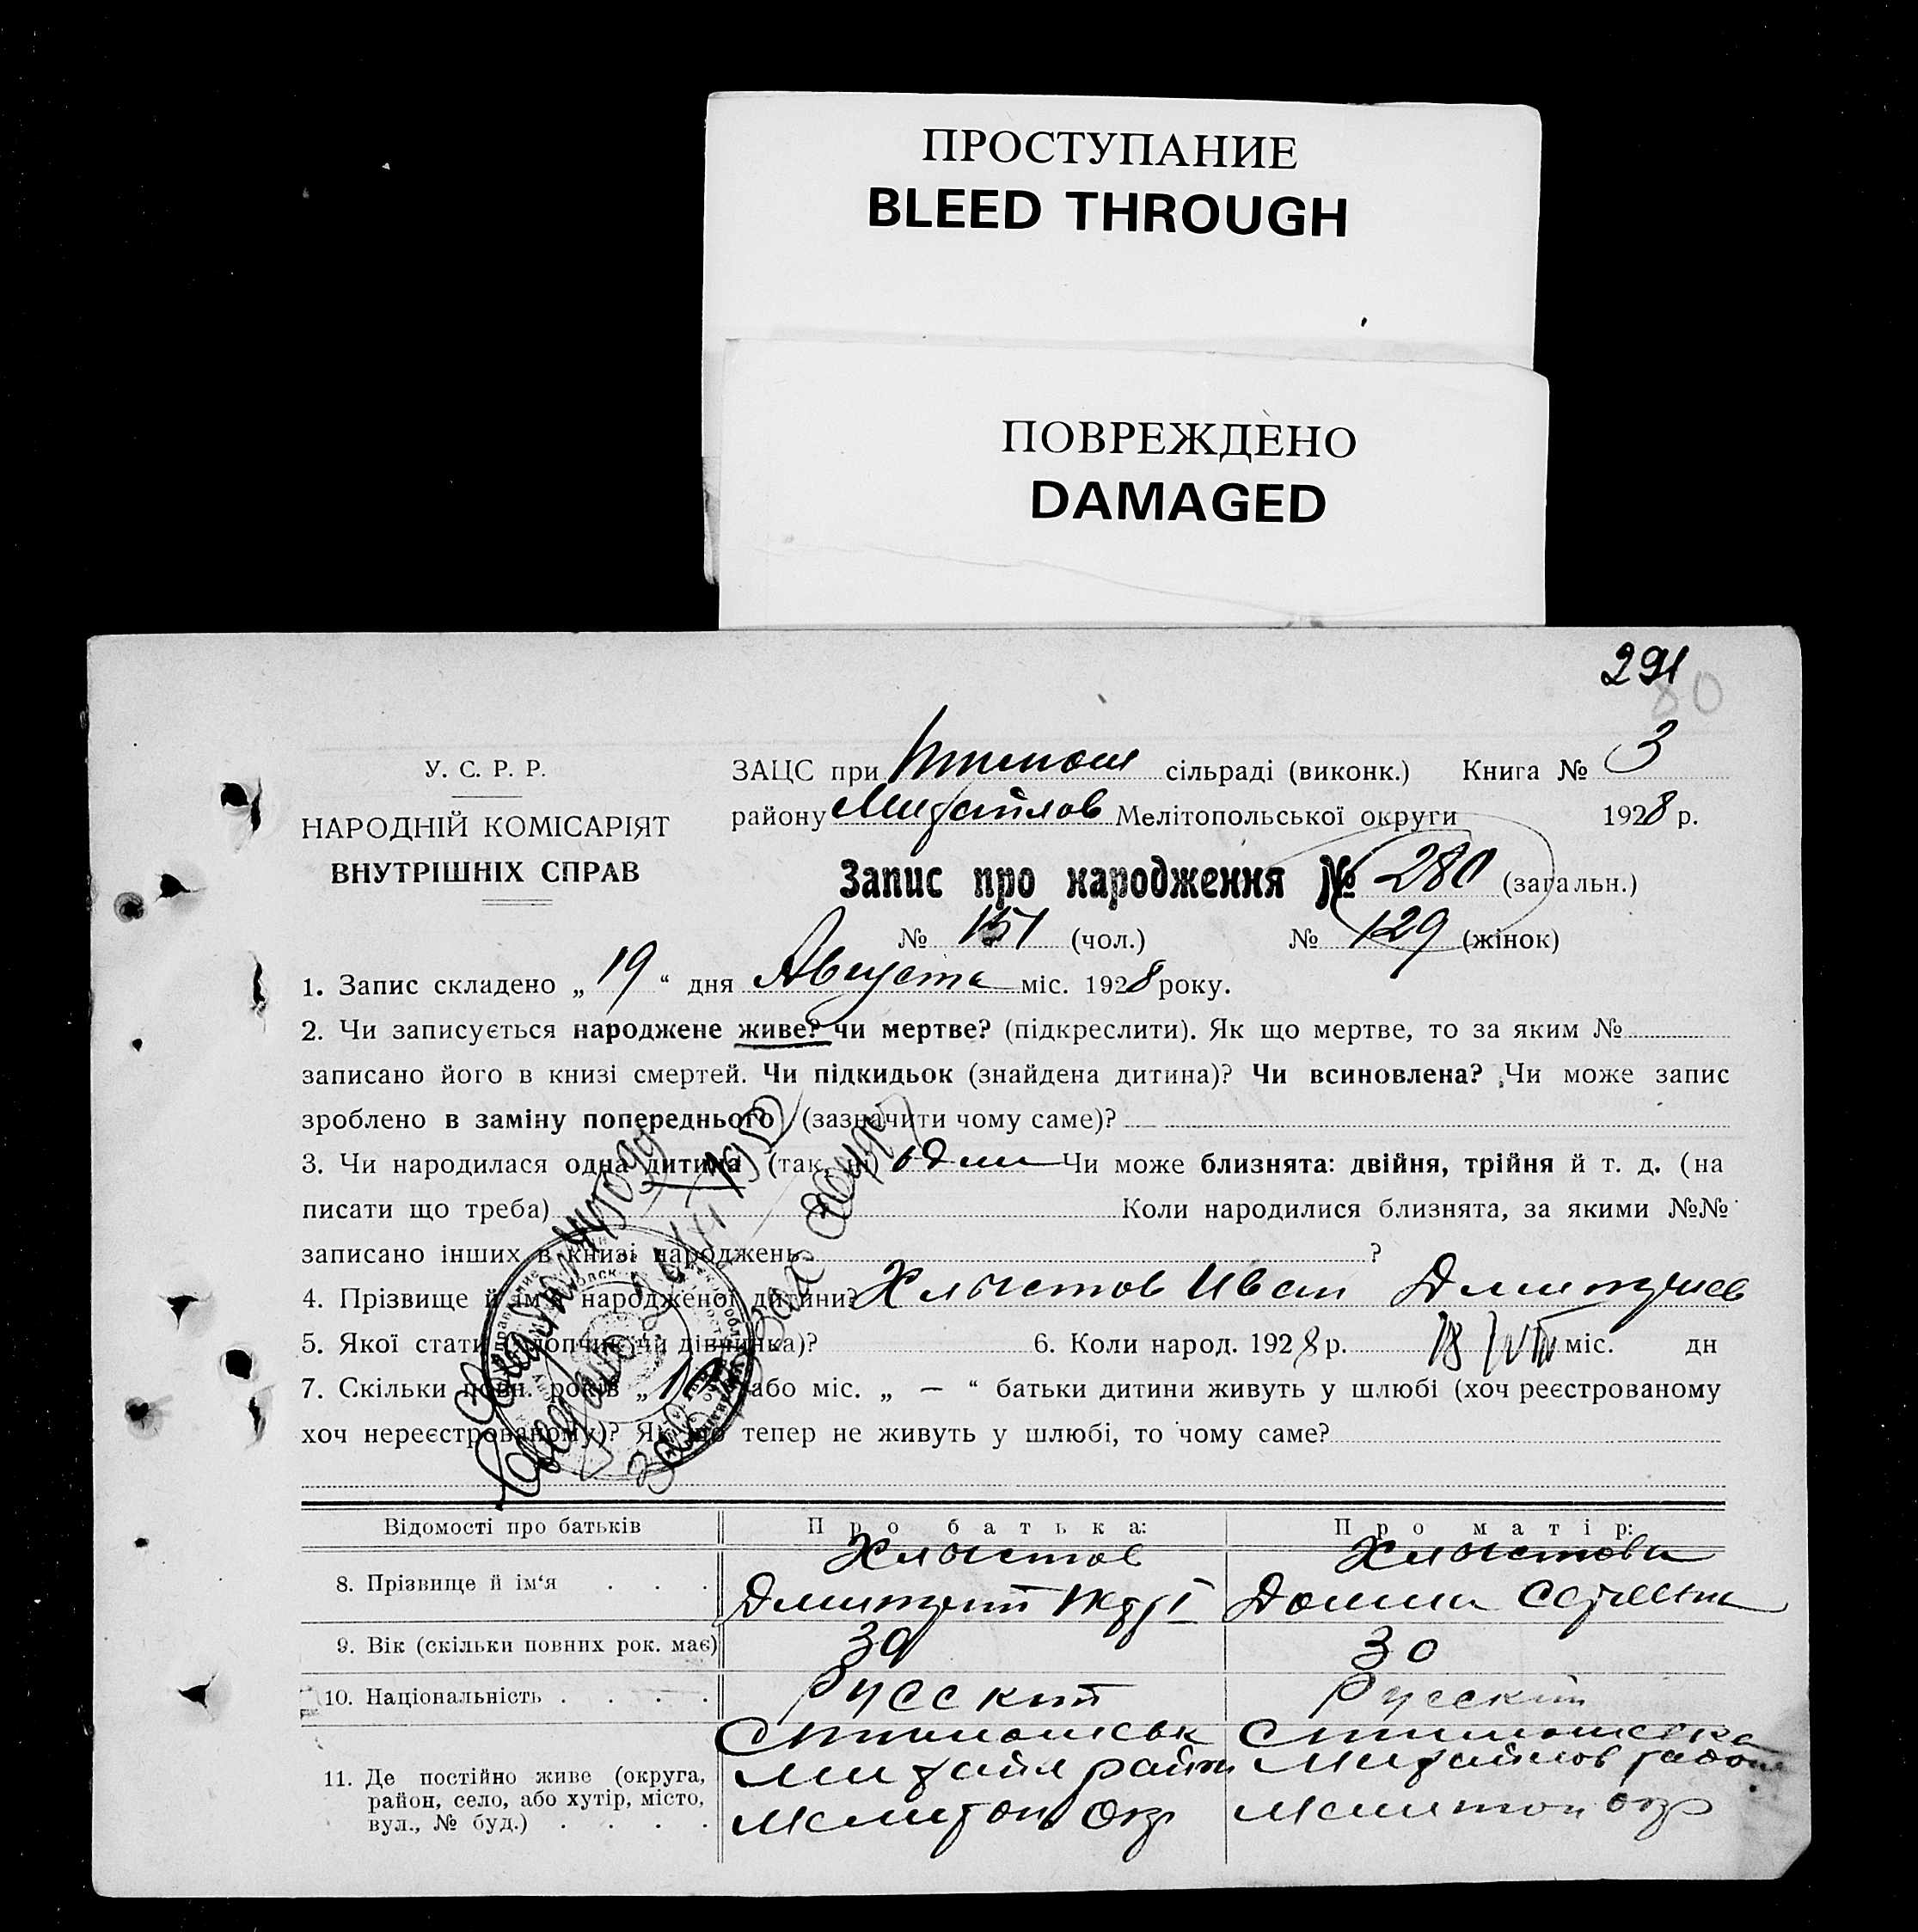 ПРОСТУПАНИЕ
BLEED THROUGH
ПОВРЕЖДЕНО
DAMAGED
291
80
У. С. Р. Р.
НАРОДНІЙ КОМІСАРІЯТ
ВНУТРІШНІХ СПРАВ
ЗАЦС при сільраді (виконк.) Книга № 3
району Михайлов Мелітопольської округи 1928 р.
Запис про народження № 280 (загальн.)
№ 151 (чол.) № 129 (жінок)
1. Запис складено „ 19 “ дня Августа міс. 1928 року.
2. Чи записується народжене живе? чи мертве? (підкреслити). Як що мертве, то за яким №
записано його в книзі смертей. Чи підкидьок (знайдена дитина)? Чи всиновлена? Чи може запис
зроблено в заміну попереднього (зазначити чому саме)?
3. Чи народилася одна дитина (так, ні) один Чи може близнята: двійня, трійня й т. д. (на
писати що треба) Коли народилися близнята, за якими №№
записано інших в книзі народжень ?
4. Прізвище й ім'я народженої дитини? Хлыстов Иван Дмитриев
5. Якої стати (хлопчик чи дівчинка)? 6. Коли народ. 1928 р. 18/VIII міс. дн
7. Скільки повн. років „ 10 “ або міс. „ — “ батьки дитини живуть у шлюбі (хоч реєстрованому
хоч нереєстрованому)? Як що тепер не живуть у шлюбі, то чому саме?
Відомості про батьків Про батька: Про матір:
8. Прізвище й ім‘я . . . Хлыстов Дмитрий Хлыстова
9. Вік (скільки повних рок. має) 30 30
10. Національність . . . . Русский Русский
11. Де постійно живе (округа, район, село, або хутір, місто, вул., № буд.) . . . .
Михайл район Михайлов район
Мелитоп Окр Мелитоп окр